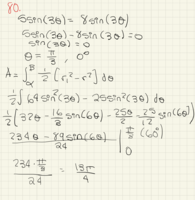 80.
5sin(3θ) = 8sin(3θ)
5sin(3θ) - 8sin(3θ) = 0
sin(3θ) = 0
θ = π/3, 0°
A = ∫_α^β 1/2 [r₁² - r₂²] dθ
1/2 ∫ 64sin²(3θ) - 25sin²(3θ) dθ
1/2 [32θ - 16/3 sin(6θ) - 25θ/2 + 25/12 sin(6θ)]
(234θ - 89sin(6θ))/24 | π/3 (60°) 0
(234·π/3)/24 = 13π/4